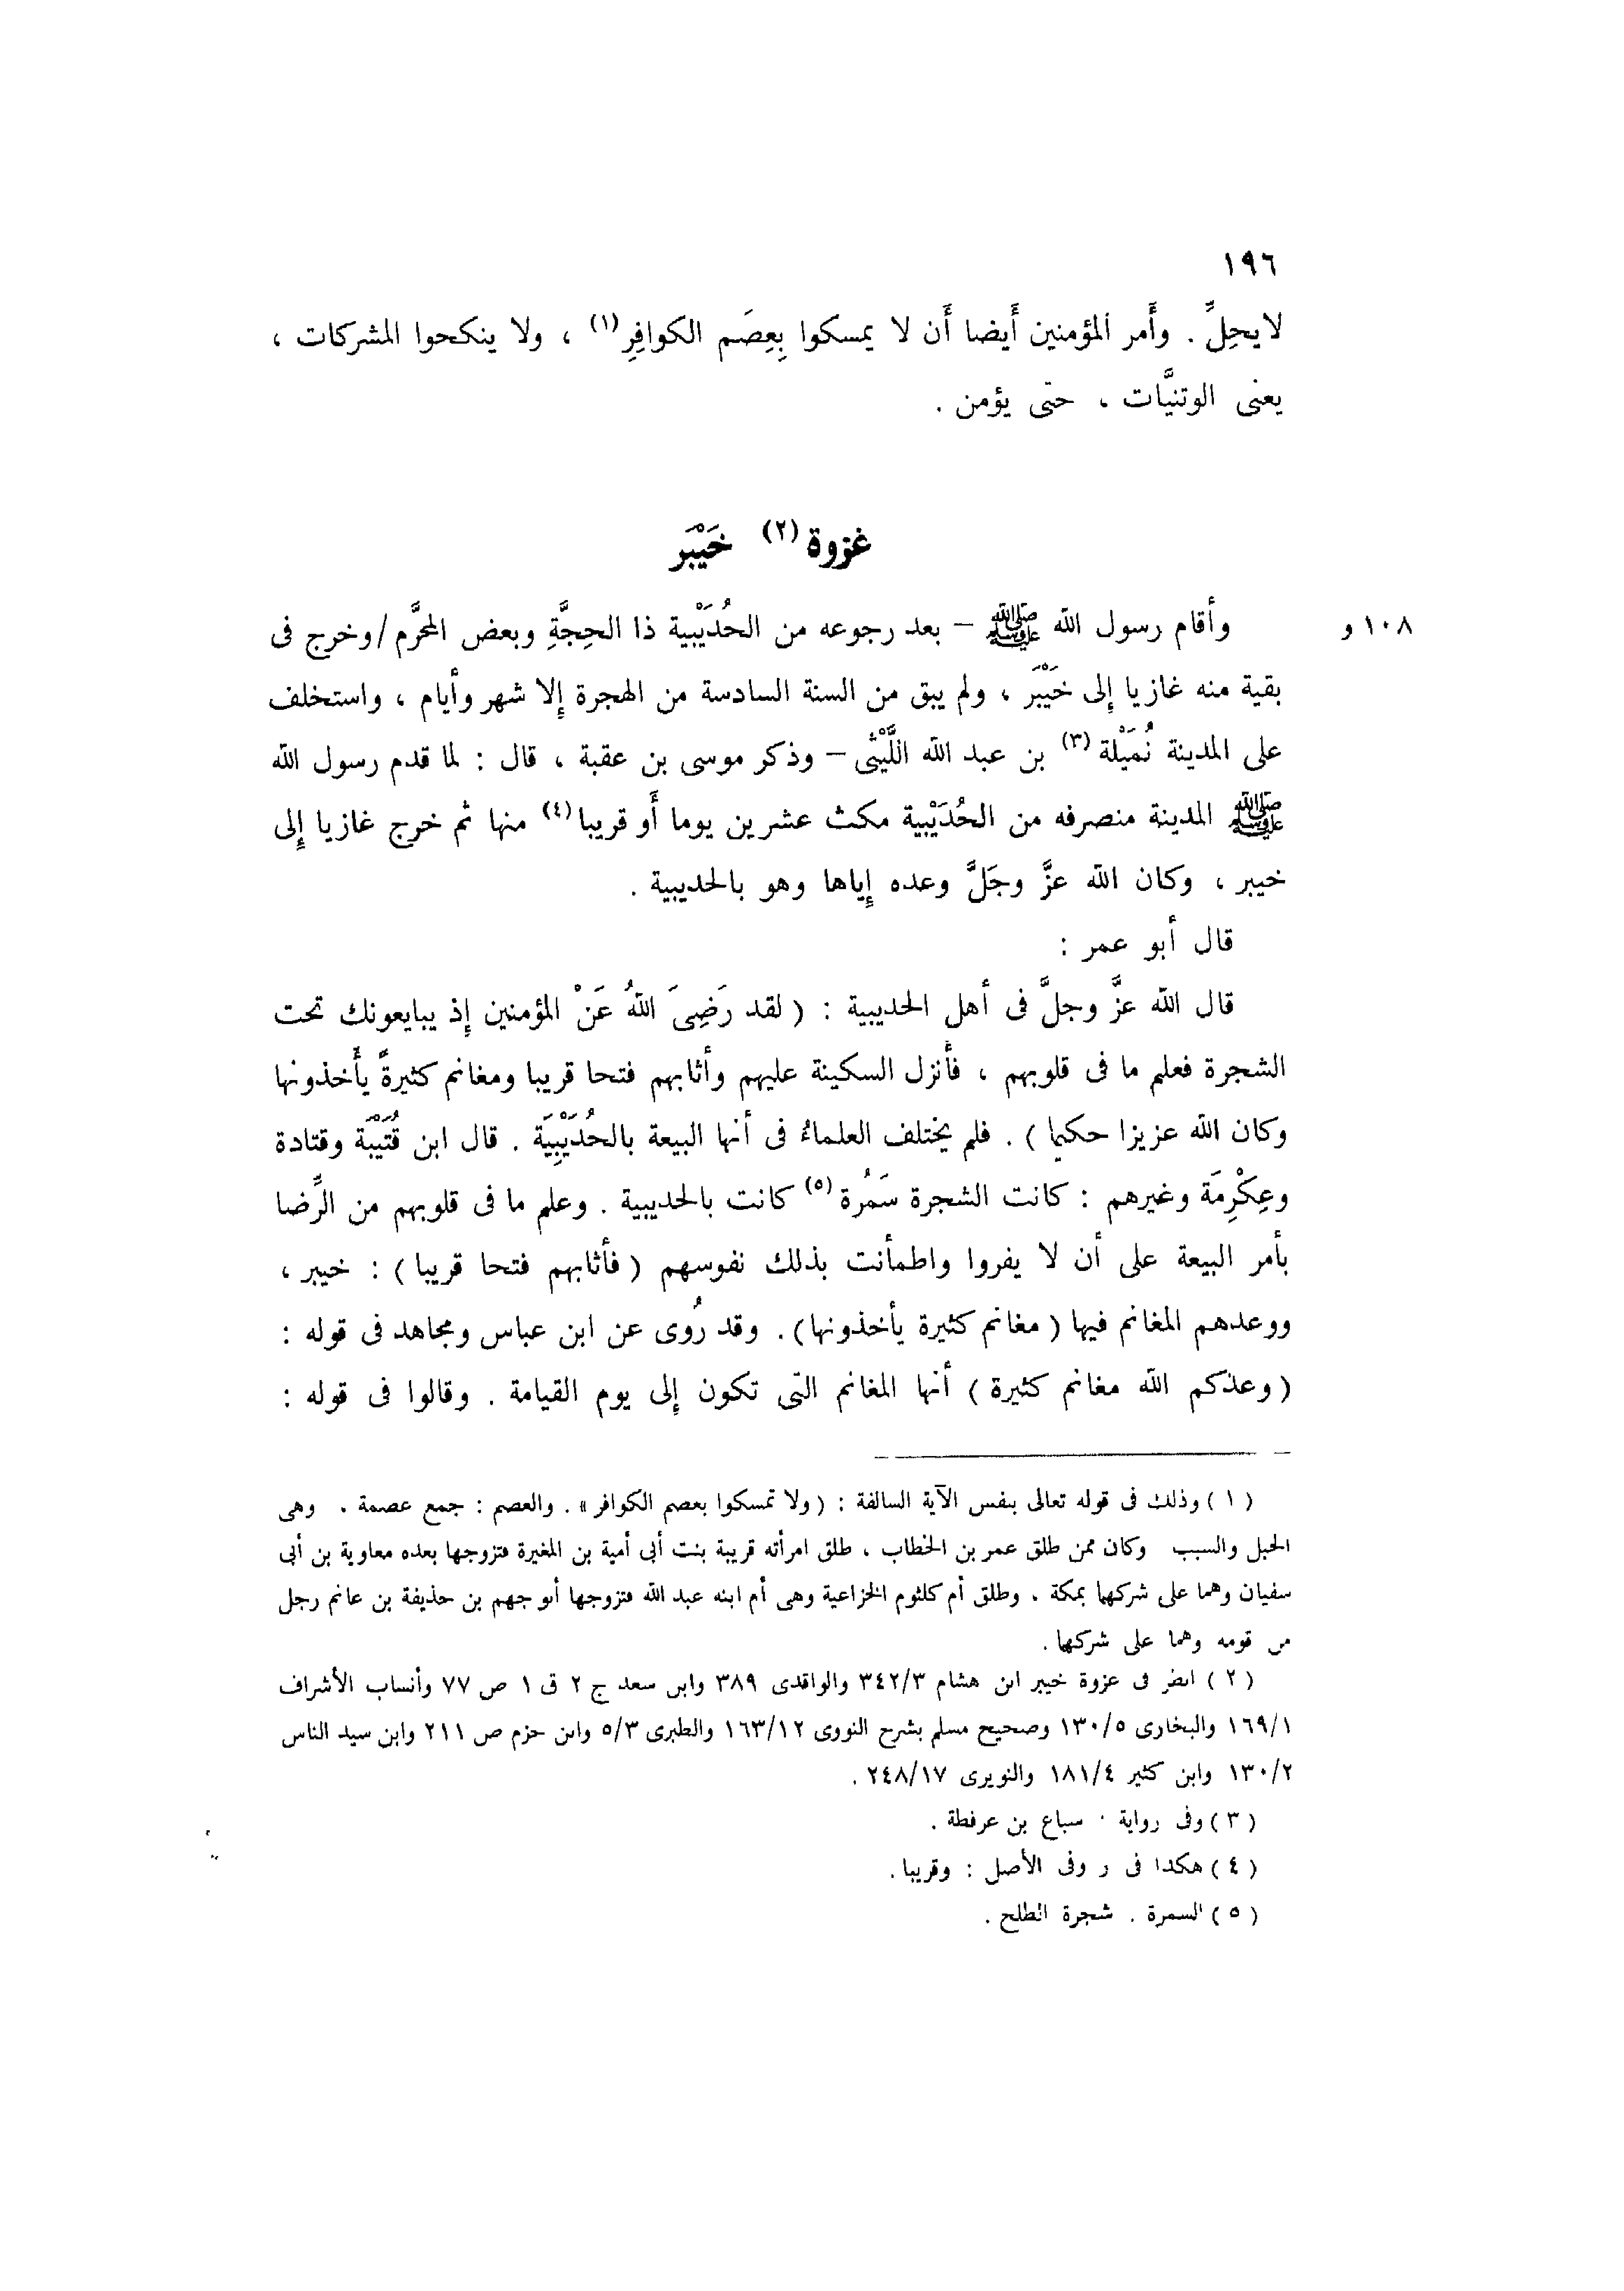 ١٩٦
لايحِلِّ . وأَمر المؤمنين أَيضا أَن لا يمسكوا بِعِصَم الكوافِرِ (١) ، ولا ينكحوا المشركات ،
يعنى الوتنيَّات ، حتى يؤمن .
غزوة (٢) خَيْبَر
١٠٨ و
وأقام رسول الله ﷺ – بعد رجوعه من الحُدَيْبية ذا الحِجَّةِ وبعض المحَّرم /وخرج فى
بقية منه غازيا إلى خَيْبَر ، ولم يبق من السنة السادسة من الهجرة إلا شهر وأيام ، واستخلف
على المدينة نُمَيْلة (٣) بن عبد الله اللَّيْثى – وذكر موسى بن عقبة ، قال : لما قدم رسول الله
ﷺ المدينة منصرفه من الحُدَيْبية مكث عشرين يوما أَو قريبا (٤) منها ثم خرج غازيا إلى
خيبر ، وكان الله عزَّ وجَلَّ وعده إياها وهو بالحديبية .
قال أبو عمر :
قال الله عزَّ وجلَّ فى أهل الحديبية : ( لقد رَضِىَ اللهُ عَنْ المؤمنين إذ يبايعونك تحت
الشجرة فعلم ما فى قلوبهم ، فأَنزل السكينة عليهم وأثابهم فتحا قريبا ومغانم كثيرةً يأخذونها
وكان الله عزيزا حكيما ) . فلم يختلف العلماءُ فى أنها البيعة بالحُدَيْبِيَة . قال ابن قُتَيْبَة وقتادة
وعِكْرِمَة وغيرهم : كانت الشجرة سَمُرة (٥) كانت بالحديبية . وعلم ما فى قلوبهم من الرِّضا
بأمر البيعة على أن لا يفروا واطمأنت بذلك نفوسهم ( فأثابهم فتحا قريبا ) : خيبر ،
ووعدهم المغانم فيها ( مغانم كثيرة يأخذونها ) . وقد رُوى عن ابن عباس ومجاهد فى قوله :
( وعدكم الله مغانم كثيرة ) أنها المغانم التى تكون إلى يوم القيامة . وقالوا فى قوله :
( ١ ) وذلك فى قوله تعالى بنفس الآية السالفة : ( ولا تمسكوا بعصم الكوافر » . والعصم : جمع عصمة . وهى
الحبل والسبب وكان ممن طلق عمر بن الخطاب ، طلق امرأته قريبة بنت أبى أمية بن المغيرة فتزوجها بعده معاوية بن أبى
سفيان وهما على شركهما بمكة ، وطلق أم كلثوم الخزاعية وهى أم ابنه عبد الله فتزوجها أبو جهم بن حذيفة بن غانم رجل
من قومه وهما على شركهما .
( ٢ ) انظر فى غزوة خيبر ابن هشام ٣٤٢/٣ والواقدى ٣٨٩ وابن سعد ج ٢ ق ١ ص ٧٧ وأنساب الأشراف
١٦٩/١ والبخارى ١٣٠/٥ وصحيح مسلم بشرح النووى ١٦٣/١٢ والطبرى ٥/٣ وابن حزم ص ٢١١ وابن سيد الناس
١٣٠/٢ وابن كثير ١٨١/٤ والنويرى ٢٤٨/١٧ .
( ٣ ) وفى رواية : سباع بن عرفطة .
( ٤ ) هكذا فى ر وفى الأصل : وقريبا .
( ٥ ) السمرة . شجرة الطلح .